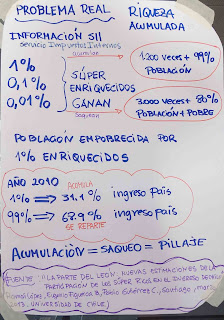 PROBLEMA REAL
RIQUEZA
ACUMULADA:
INFORMACIÓN SII
Servicio Impuestos Internos
1%
0,1%
0,01%
acumulan
SÚPER
ENRIQUECIDOS
GANAN
saquean
1.200 veces + 99%
POBLACIÓN
3.000 veces + 80%
POBLACIÓN + POBRE
POBLACIÓN EMPOBRECIDA POR
1% ENRIQUECIDOS
AÑO 2010
ACUMULA
1% ⇒ 31.1 % ingreso país
99% ⇒ 68.9 % ingreso país
SE REPARTE
ACUMULACIÓN = SAQUEO = PILLAJE
FUENTE: "LA PARTE DEL LEON: NUEVAS ESTIMACIONES DE LA
PARTICIPACIÓN DE LOS SÚPER RICOS EN EL INGRESO DE CHILE"
Ramón López, Eugenio Figueroa B, Pablo Gutiérrez C, Santiago, marzo
2013. UNIVERSIDAD DE CHILE)